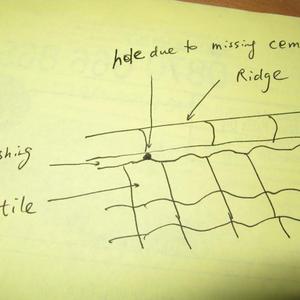 hole due to missing cem
Ridge
shing
tile